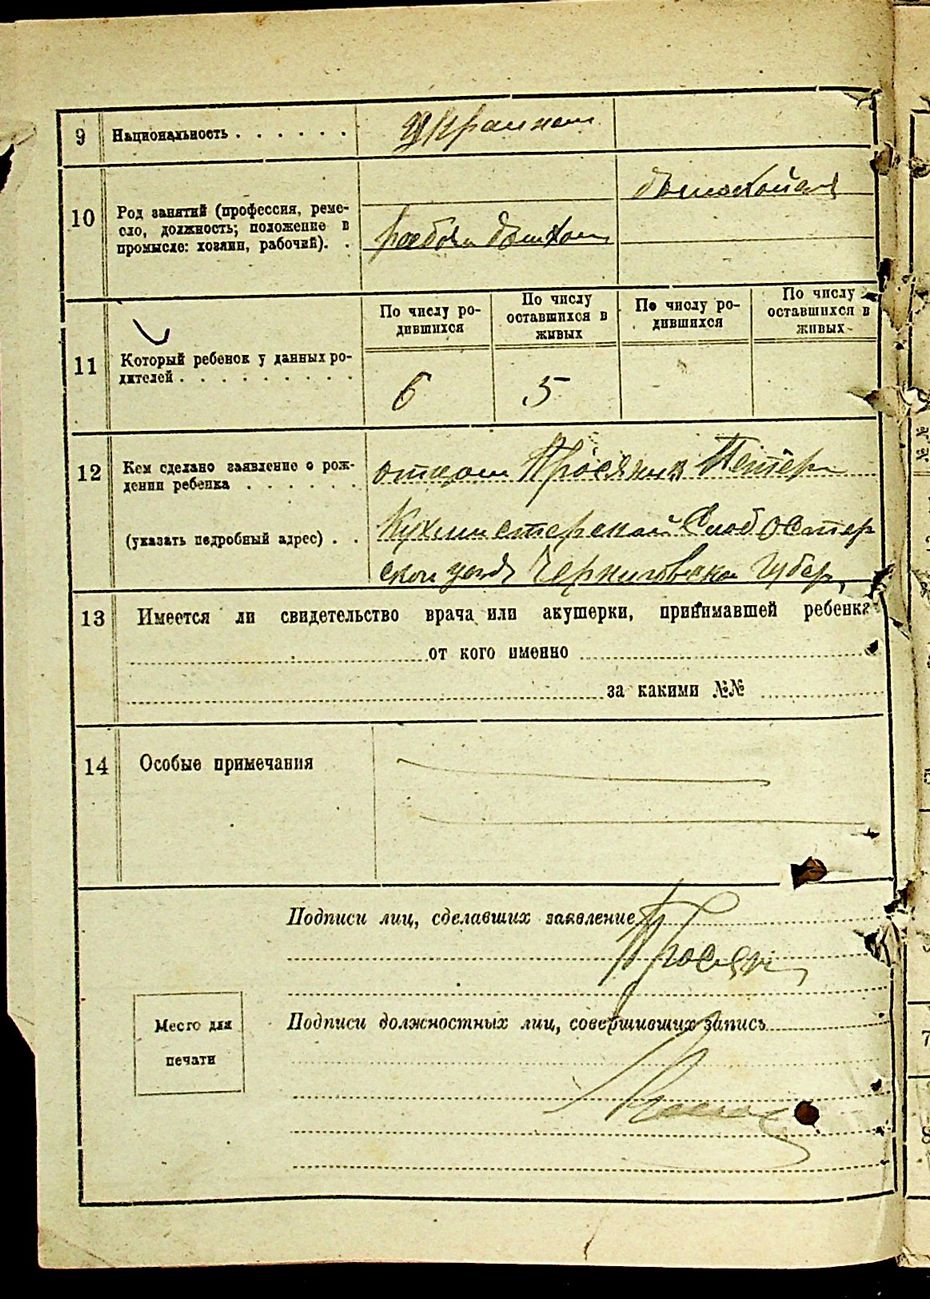 9 Национальность . . . . . . Украинец
10 Род занятий (профессия, реме-
сло, должность; положение в
промысле: хозяин, рабочий). .
домохозяй
рабоч
11 Который ребенок у данных ро-
дителей . . . . . . . . .
По числу ро-
дившихся
По числу
оставшихся в
живых
По числу ро-
дившихся
По числу
оставшихся в
живых
6 5
12 Кем сделано заявление о рож-
дении ребенка . . . . . .
(указать подробный адрес) . .
отцом Просяник
Кухмистерской Слоб Остер
ском Черниговской Губер,
13 Имеется ли свидетельство врача или акушерки, принимавшей ребенка
от кого именно
за какими №№
14 Особые примечания
Подписи лиц, сделавших заявление
Просян
Место для
печати
Подписи должностных лиц, совершивших запись